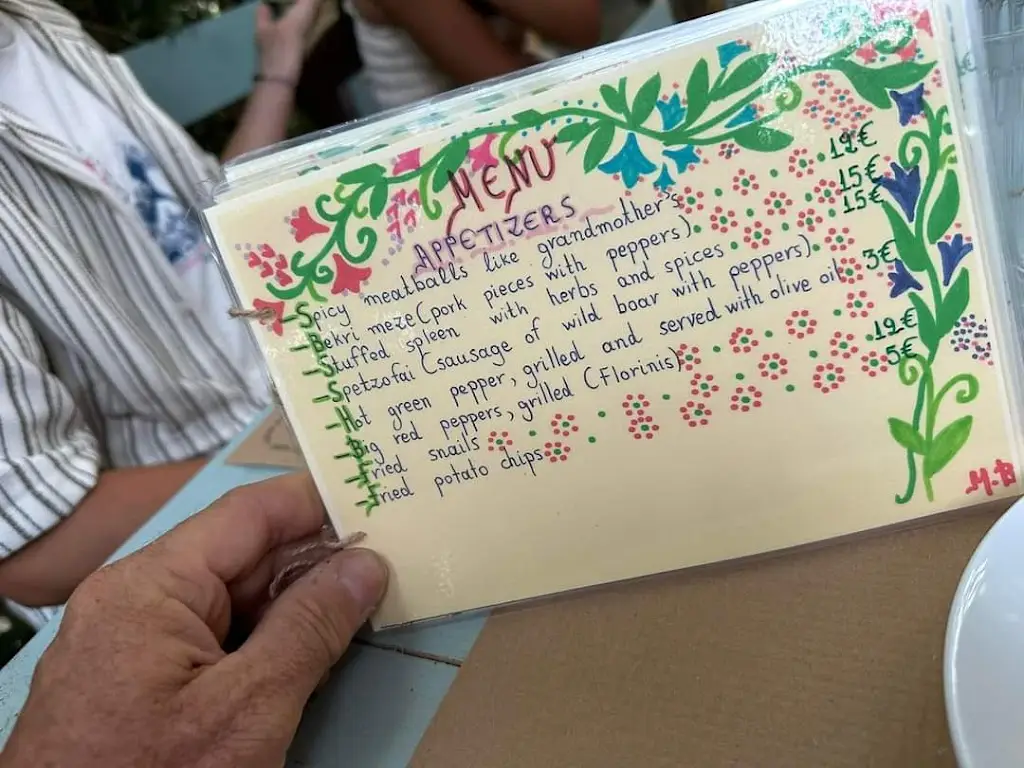 MENU
APPETIZERS
-Spicy meatballs like grandmother's
-Bekri meze (pork pieces with peppers)
-Stuffed spleen with herbs and spices
-Spetzofai (sausage of wild boar with peppers)
-Hot green pepper, grilled and served with olive oil
-Big red peppers, grilled (Florinis)
-Fried snails
-Fried potato chips
12€
15€
15€
3€
12€
5€